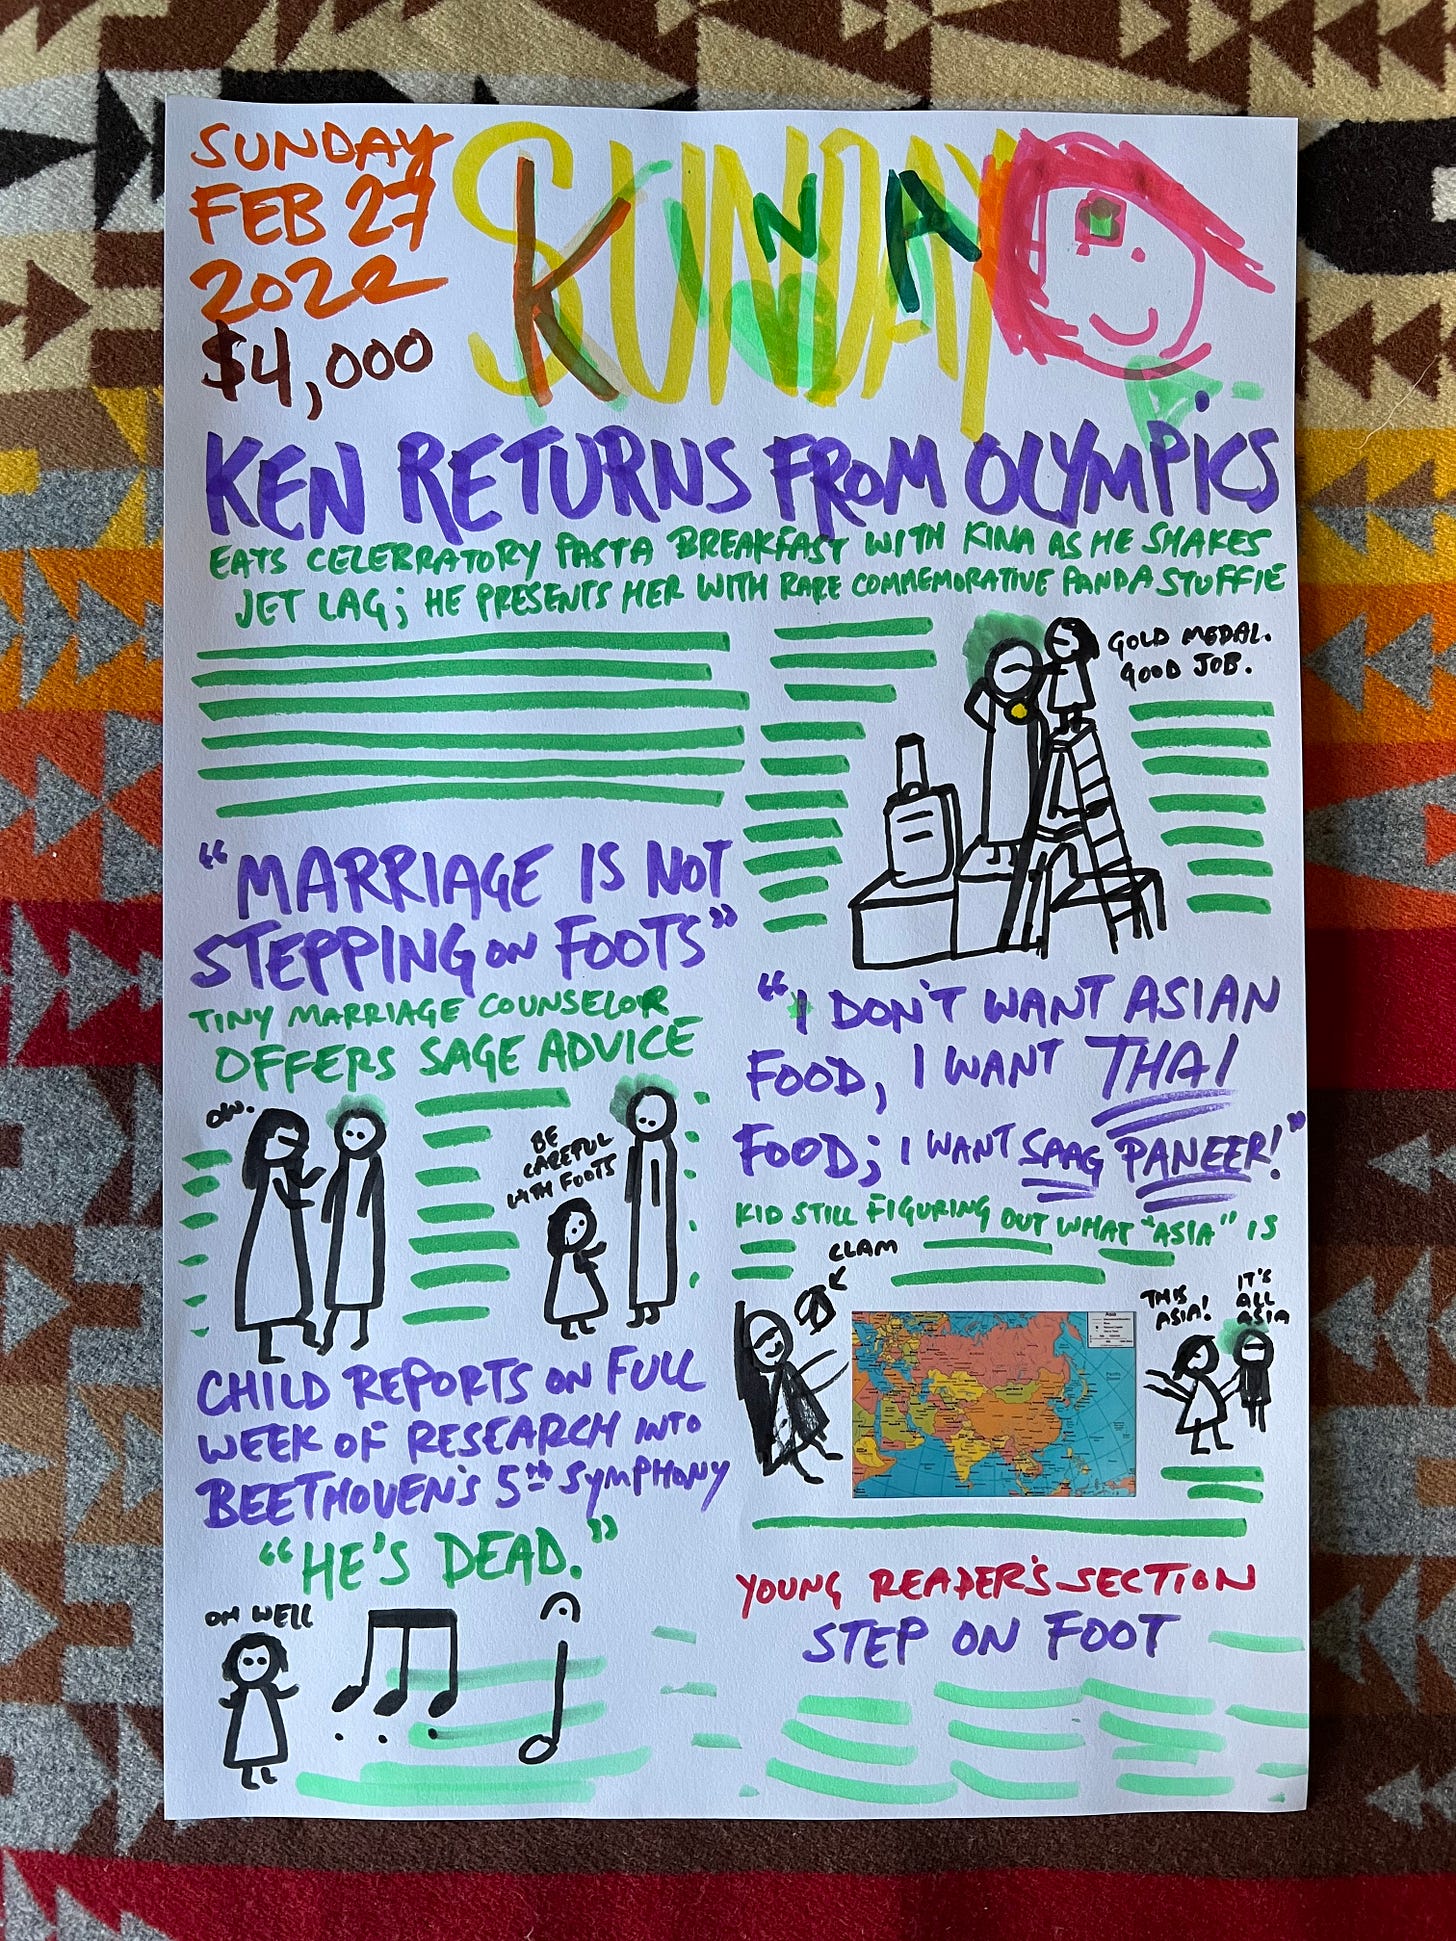 SUNDAY
FEB 27
2022
$4,000
SUNDAY
KINA
KEN RETURNS FROM OLYMPICS
EATS CELEBRATORY PASTA BREAKFAST WITH KINA AS HE SHAKES
JET LAG; HE PRESENTS HER WITH RARE COMMEMORATIVE PANDA STUFFIE
GOLD MEDAL.
GOOD JOB.
"MARRIAGE IS NOT
STEPPING ON FOOTS"
TINY MARRIAGE COUNSELOR
OFFERS SAGE ADVICE
OW.
BE
CAREFUL
WITH FOOTS
"I DON'T WANT ASIAN
FOOD, I WANT THAI
FOOD; I WANT SAAG PANEER!"
KID STILL FIGURING OUT WHAT "ASIA" IS
CLAM
THIS
ASIA!
IT'S
ALL
ASIA
CHILD REPORTS ON FULL
WEEK OF RESEARCH INTO
BEETHOVEN'S 5TH SYMPHONY
"HE'S DEAD."
OH WELL
YOUNG READER'S SECTION
STEP ON FOOT